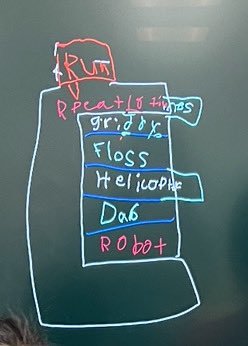 Run
Rpeat 10 times
griddy
Floss
Helicopter
Dab
Robot